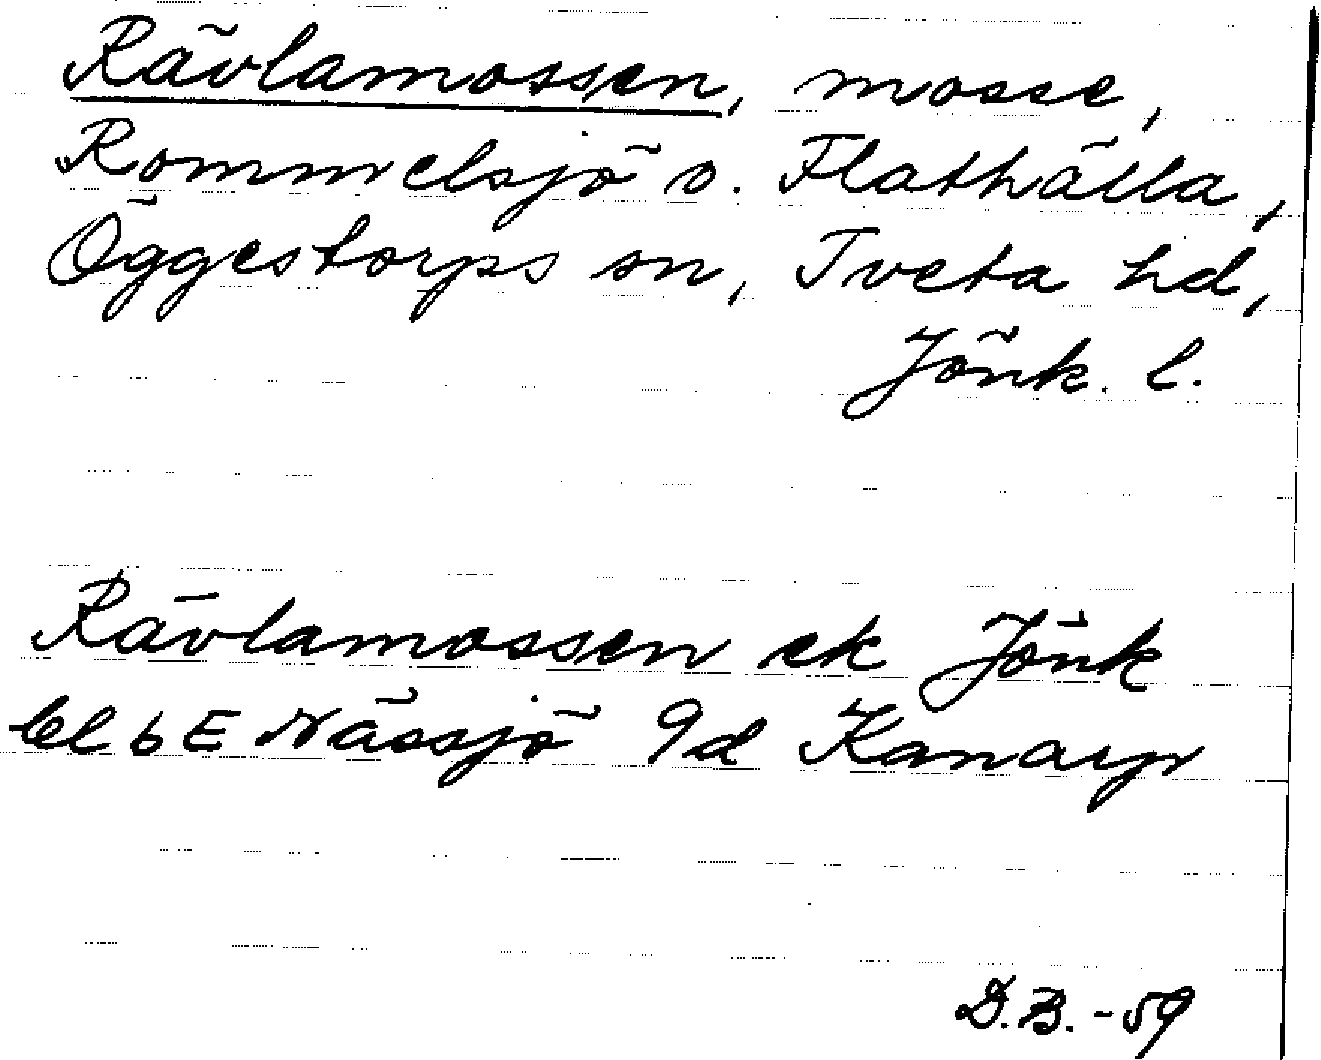 Rävlamossen, mosse,
Rommelsjö o. Flathälla,
Öggestorps sn, Tveta hd,
Jönk. l.
Rävlamossen ek Jönk
bl 6E Nässjö 9d Kanarp
D.B. -59